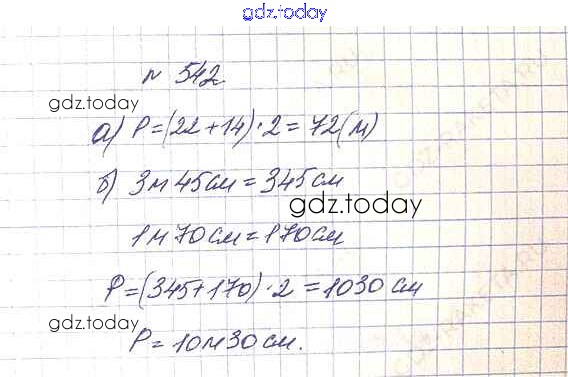 gdz.today
№ 542
gdz.today
а) P=(22+14)·2=72(м)
б) 3м 45см=345см
gdz.today
1м 70см=170см
P=(345+170)·2=1030 см
gdz.today
P=10м 30см.